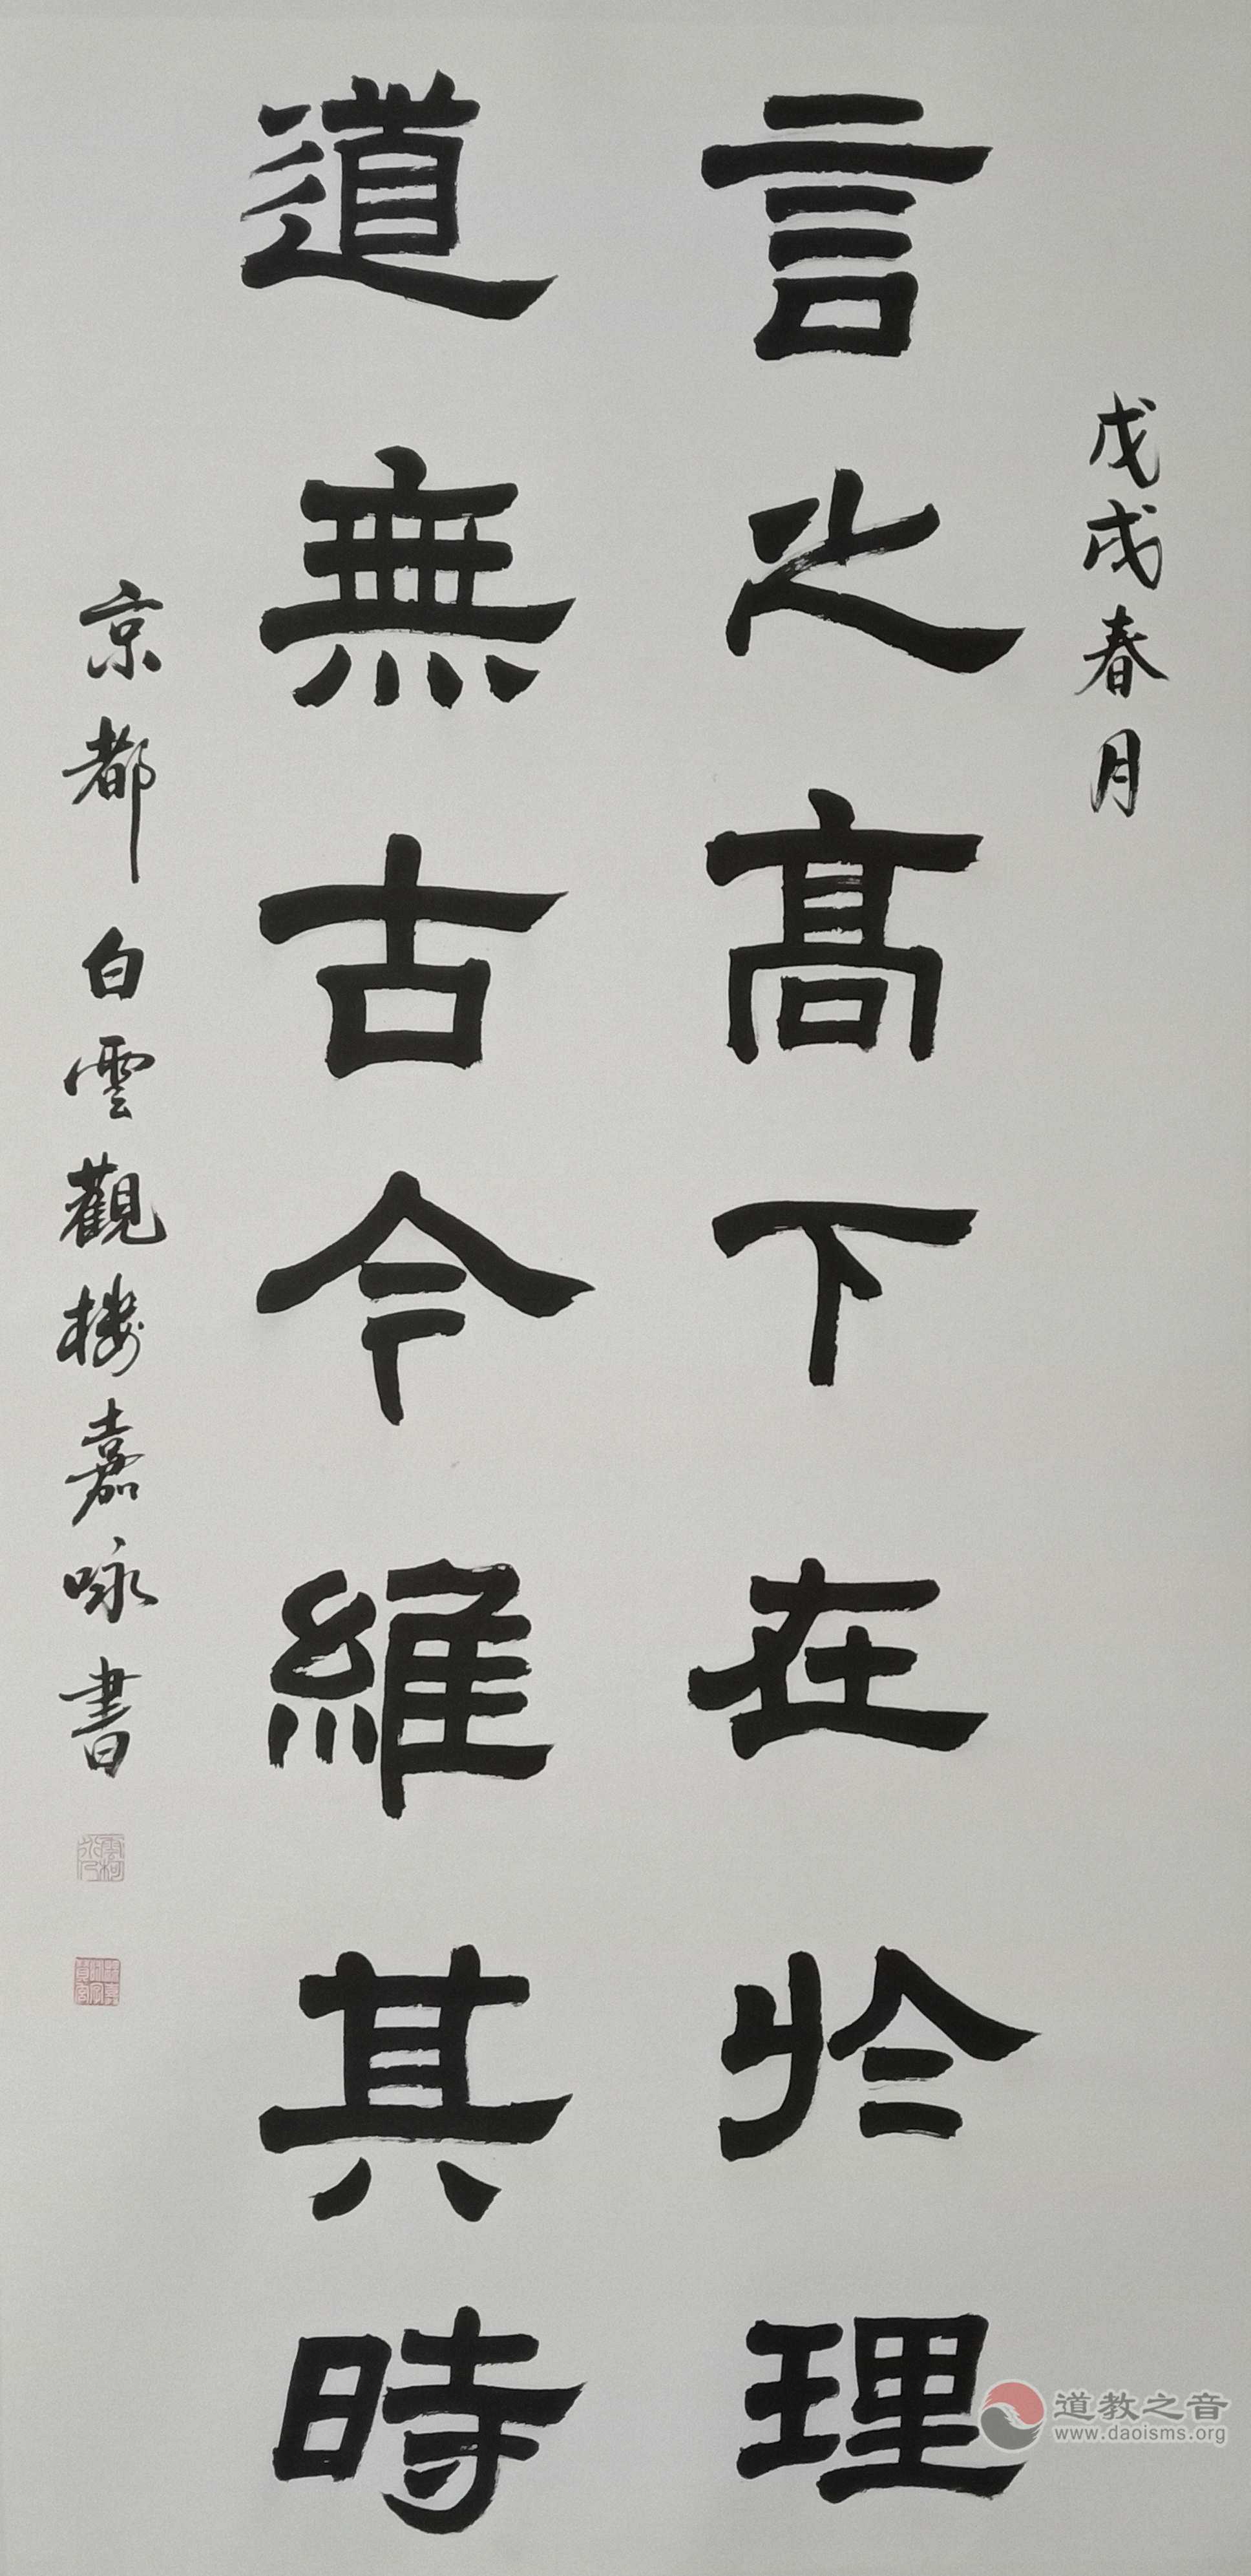 戊戌春月
言之髙下在於理
道無古今維其時
京都白雲觀楼嘉咏書
道教之音
www.daoisms.org